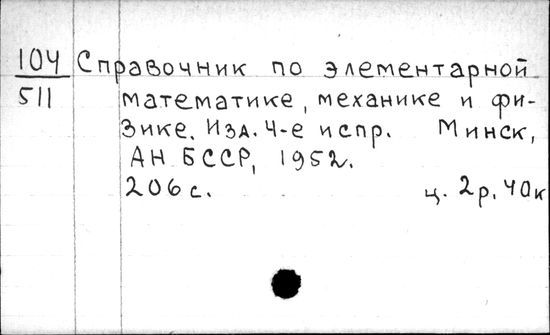 104 Справочник по элементарной
511 математике, механике и фи-
зике. Изд. 4-е испр. Минск,
АН БССР, 1952.
206 с. ц. 2р. 40к